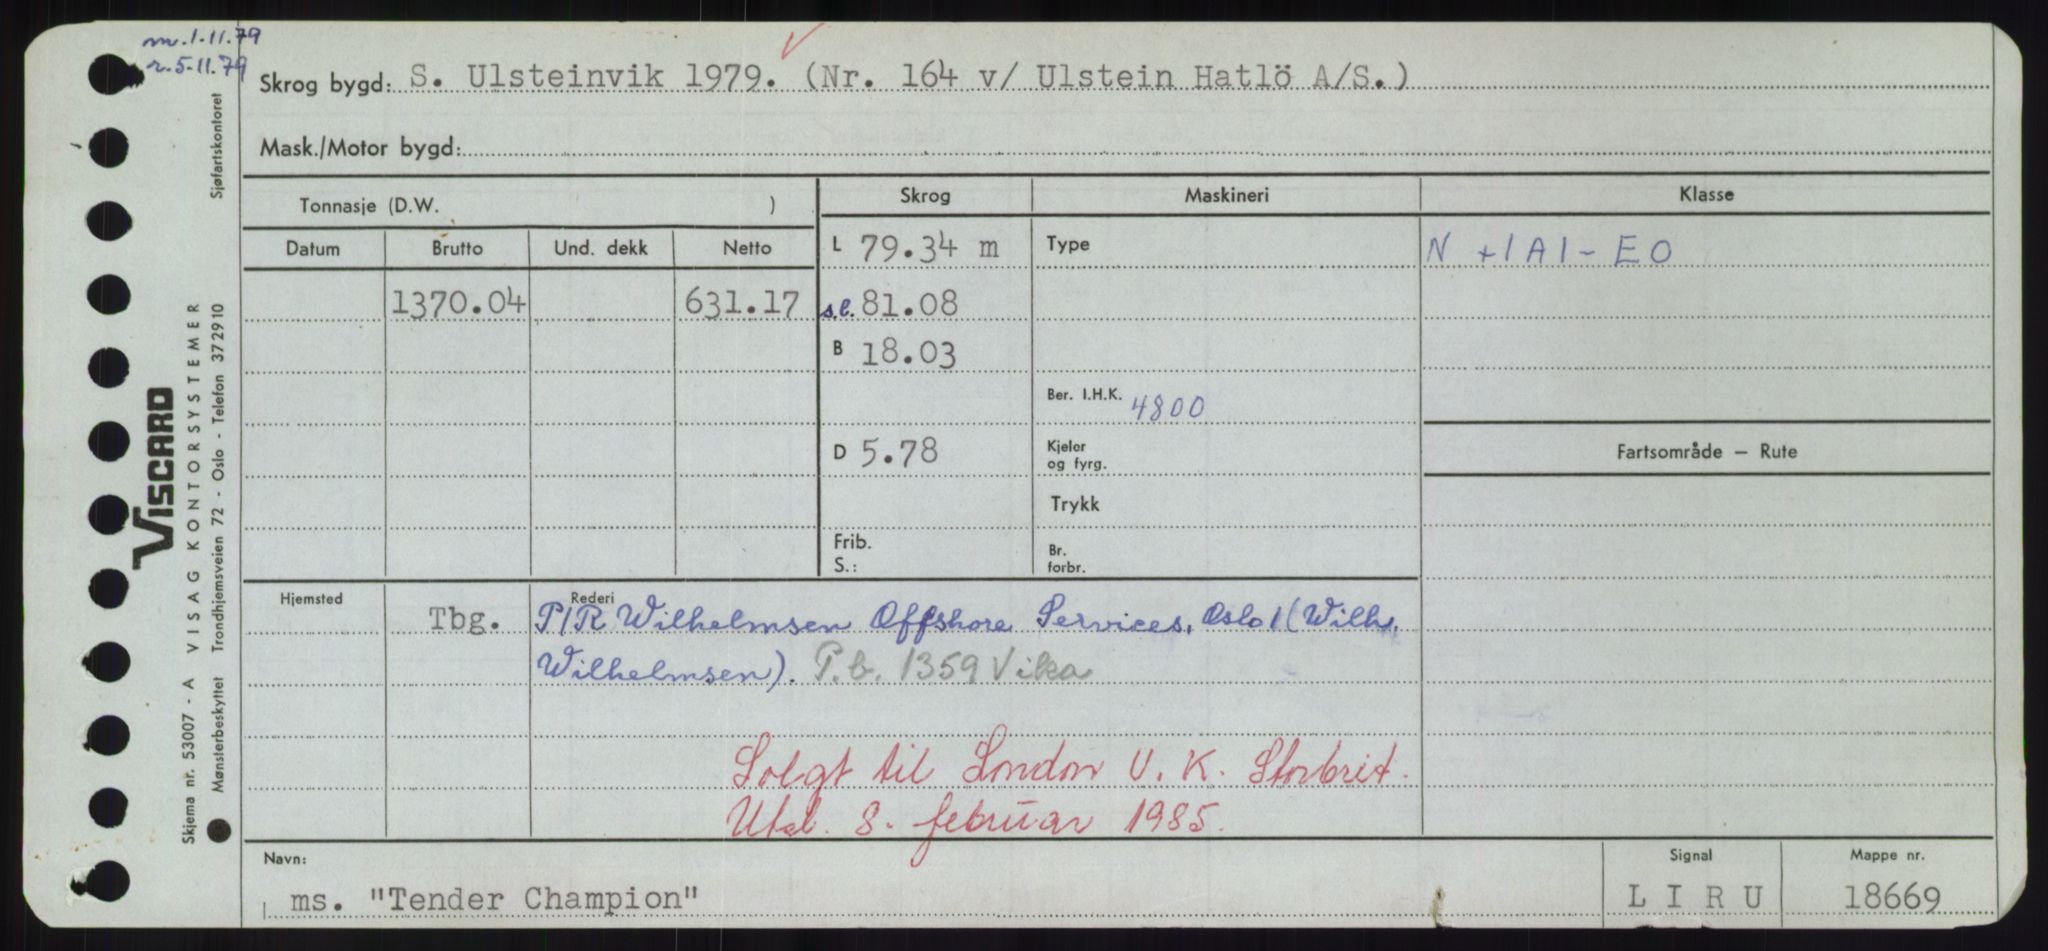 m. 1-11.79
r. 5-11.79
Skrog bygd: S. Ulsteinvik 1979. (Nr. 164 v/ Ulstein Hatlö A/S.)
Mask./Motor bygd:
Tonnasje (D.W. )
Skrog
Maskineri
Klasse
Datum Brutto Und. dekk Netto
L 79.34 m
Type
N +1A1 - EO
1370.04 631.17
s.l. 81.08
B 18.03
Ber. I.H.K. 4800
D 5.78
Kjeler
og fyrg.
Fartsområde — Rute
Trykk
Frib.
S.:
Br.
forbr.
Hjemsted
Rederi
Tbg. P/R Wilhelmsen Offshore Services, Oslo 1 (Wilh.
Wilhelmsen). P.b. 1359 Vika
Solgt til London U.K. Storbrit.
Utsl. 8. februar 1985.
Navn:
ms. "Tender Champion"
Signal
LIRU
Mappe nr.
18669
VISCARD
Skjema nr. 53007 - A VISAG KONTORSYSTEMER
Mønsterbeskyttet Trondhjemsveien 72 - Oslo - Telefon 372910 Sjøfartskontoret